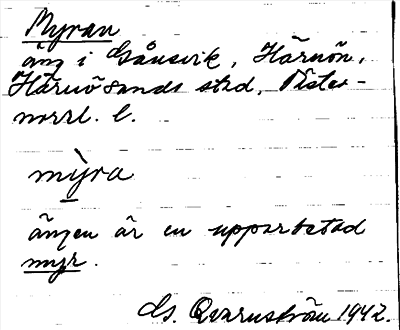 Myran
äng i Gånsvik, Härnön,
Härnösands stad, Väster-
norrl. l.
mỳra
ängen är en upparbetad
myr.
Gs. Qvarnström 1942.